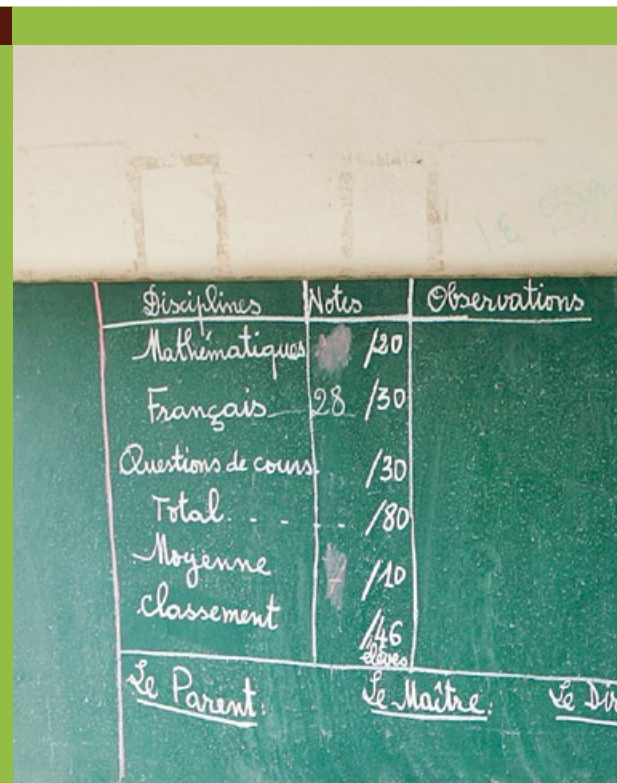 LE
Disciplines Notes Observations
Mathématiques /20
Français 28 /30
Questions de cours /30
Total. . - . . . /80
Moyenne /10
classement /46
élèves
Le Parent: Le Maître: Le Dir